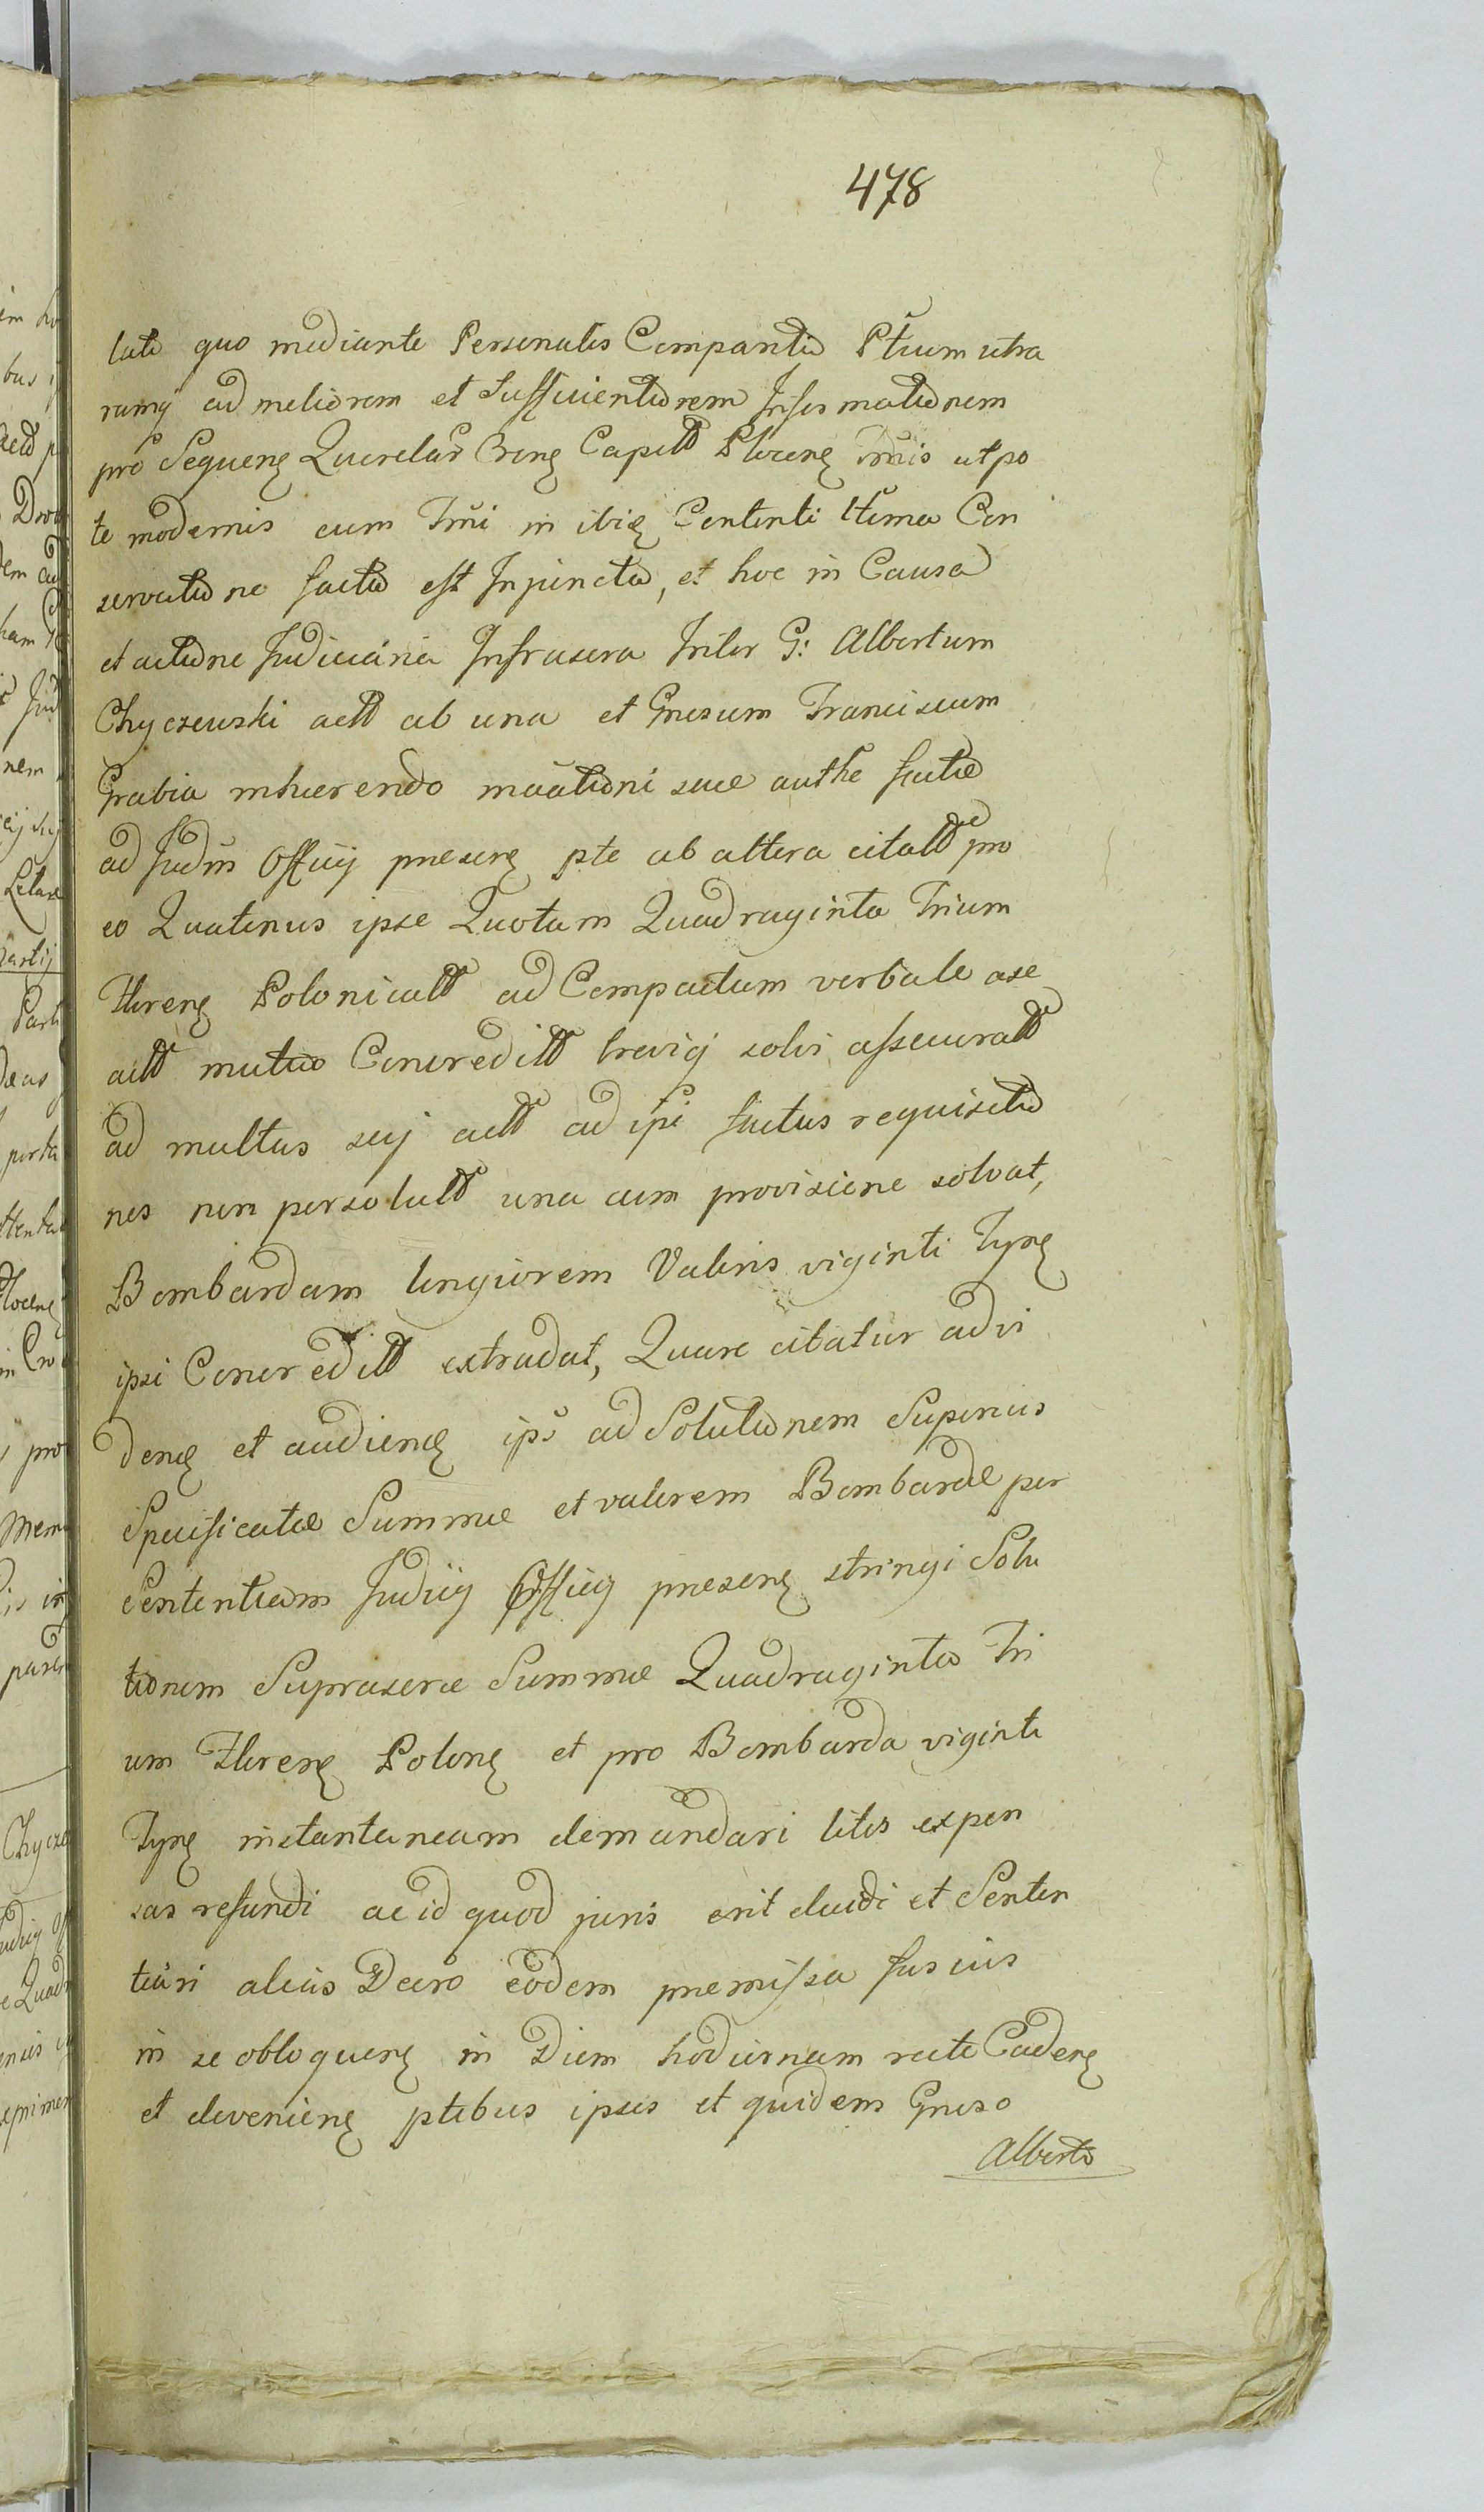 478
lato quo mediante Personalis Comparitio Ptium utra
rumq ad meliorem et Sufficientiorem Informationem
pro Sequenꝫ Querelar Orenꝫ Capitt Plocenꝫ Tmis utpo
te modernis cum Tmi in ibiꝫ Contenti Ltima Con
servatione facta est Injuncta, et hoc in Causa
et actione Judiciaria Infrascra Inter G: Albertum
Chyczewski actt ab una et Gnosum Franciscum
Grabia inhaerendo motioni suae authe factae
ad Judm Officij praesenꝫ pte ab altera citatt pro
eo Quatenus ipse Quotam Quadraginta Trium
Florenꝫ Polonicatt ad Compactum verbale ase
actt mutuo Concreditt brevicj solvi assecuratt
ad multas sej actt ad ipm factas requisitio
nes non persolutt una cum provisione solvat,
Bombardam longiorem Valoris viginti Tynꝫ
ipsi Concreditt extradat, Quare citatur ad vi
denꝫ et audienꝫ ips ad Solutionem Superius
Specificatae Summae et valorem Bombardae per
Sententiam Judicij Officij praesenꝫ stringi Solu
tionem Suprascrae Summae Quadraginta Tri
um Florenꝫ Polonꝫ et pro Bombarda viginti
Tynꝫ instantaneam demandari litis expen
sas refundi ac id quod juris erit decidi et Senten
tiari alias Decro eodem praemissa fusius
in se obloquenꝫ in Diem hodiernam recte Cadenꝫ
et devenienꝫ ptibus ipsis et quidem Gnoso
Alberto